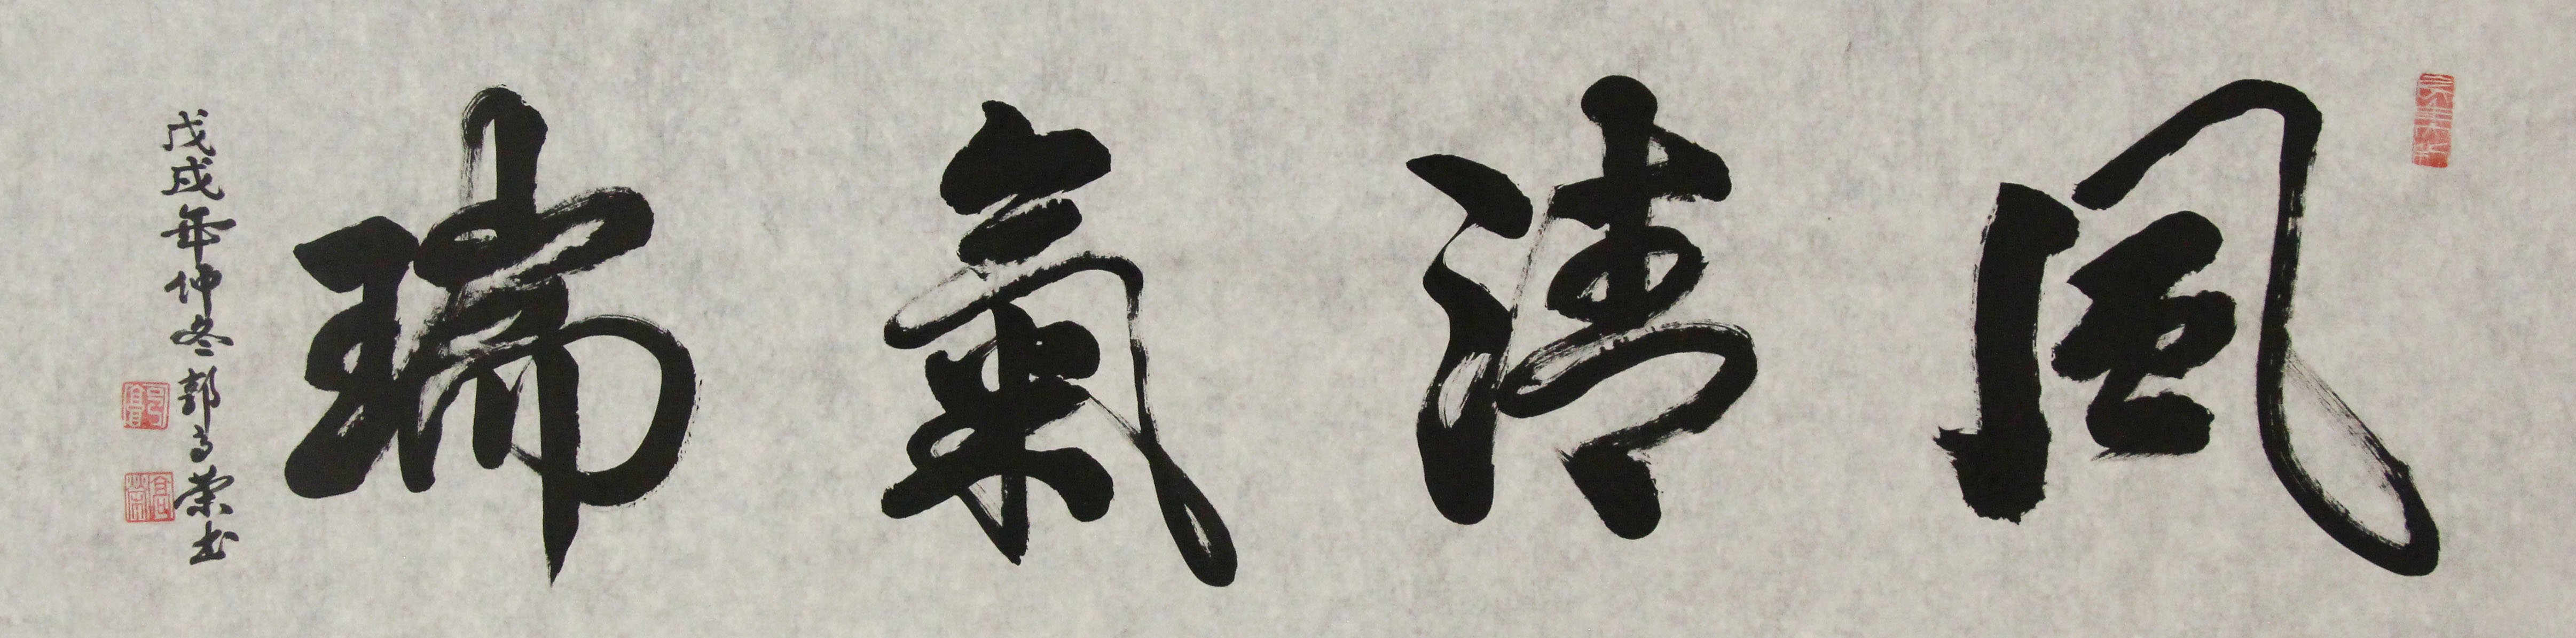 風清氣瑞
戊戌年仲冬彭高榮书